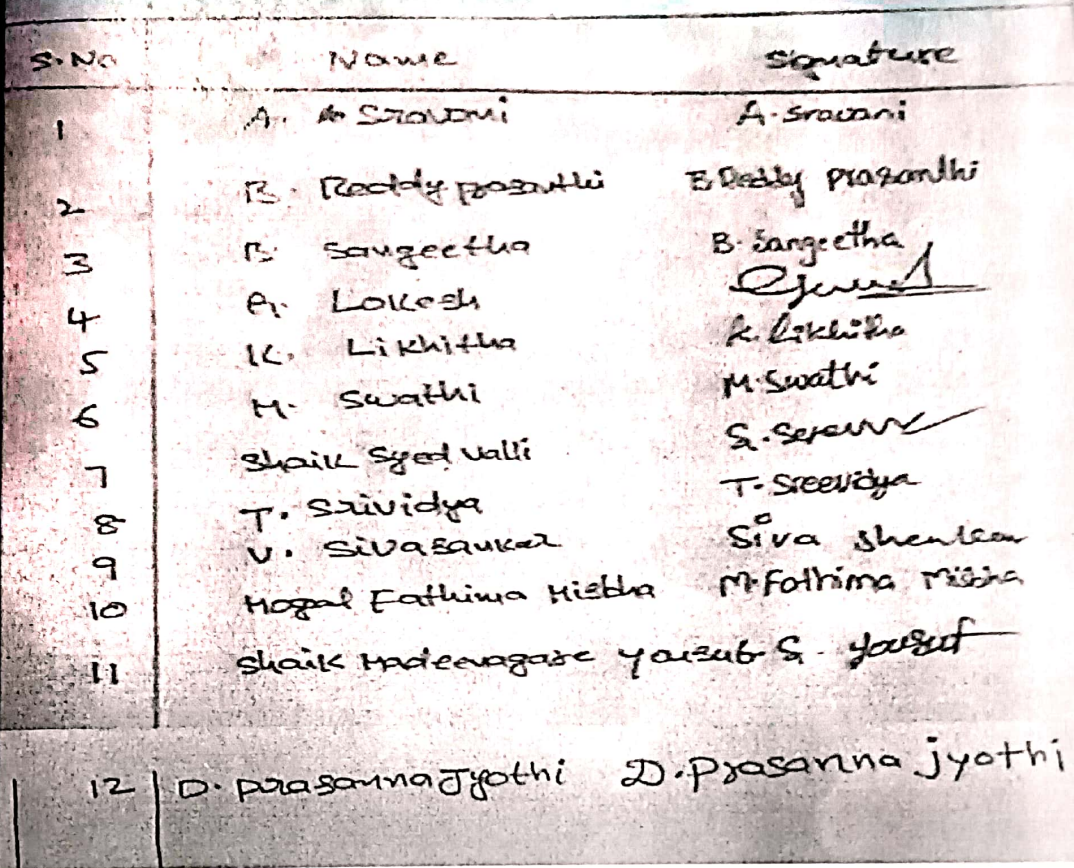 S.No Name Signature
1 A. Sravani A. Sravani
2 B. Reddy prasanthi B Reddy prasanthi
3 B. Sangeetha B. Sangeetha
4 A. Lokesh
5 K. Likhitha K. Likhitha
6 M. Swathi M. Swathi
7 Shaik Syed Valli
8 T. Srividya T. Sreevidya
9 V. Siva Sankar Siva Shenkar
10 Mogal Fathima Misbha M. Fathima Misbha
11 Shaik Madeenagare yousub S. yousuf
12 D. prasanna Jyothi D. prasanna jyothi